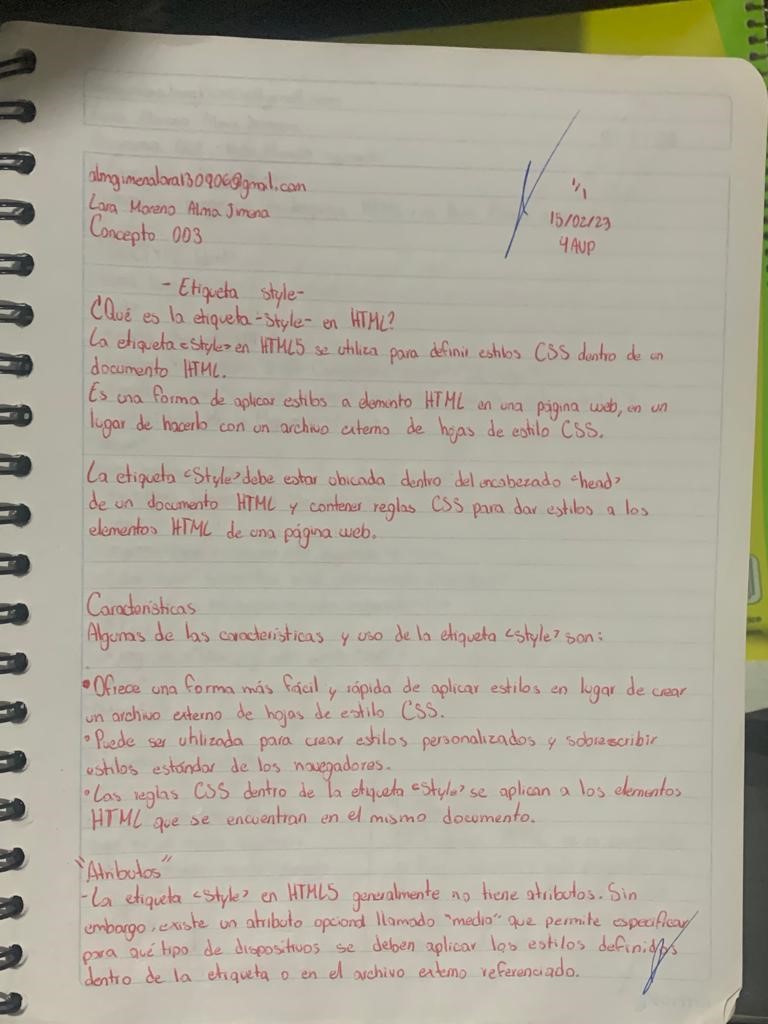 almgimenalara130906@gmail.com
Lara Moreno Alma Jimena
Concepto 003
1/1
15/02/23
4AVP
- Etiqueta style-
¿Qué es la etiqueta -Style- en HTML?
La etiqueta <style> en HTML5 se utiliza para definir estilos CSS dentro de un
documento HTML.
Es una forma de aplicar estilos a elemento HTML en una página web, en un
lugar de hacerlo con un archivo externo de hojas de estilo CSS.
La etiqueta <Style> debe estar ubicada dentro del encabezado <head>
de un documento HTML y contener reglas CSS para dar estilos a los
elementos HTML de una página web.
Características
Algunas de las características y uso de la etiqueta <style> son:
•Ofrece una forma más fácil y rápida de aplicar estilos en lugar de crear
un archivo externo de hojas de estilo CSS.
•Puede ser utilizada para crear estilos personalizados y sobrescribir
estilos estándar de los navegadores.
•Las reglas CSS dentro de la etiqueta <style> se aplican a los elementos
HTML que se encuentran en el mismo documento.
"Atributos"
-La etiqueta <style> en HTML5 generalmente no tiene atributos. Sin
embargo, existe un atributo opcional llamado "medio" que permite especificar
para qué tipo de dispositivos se deben aplicar los estilos definidos
dentro de la etiqueta o en el archivo externo referenciado.